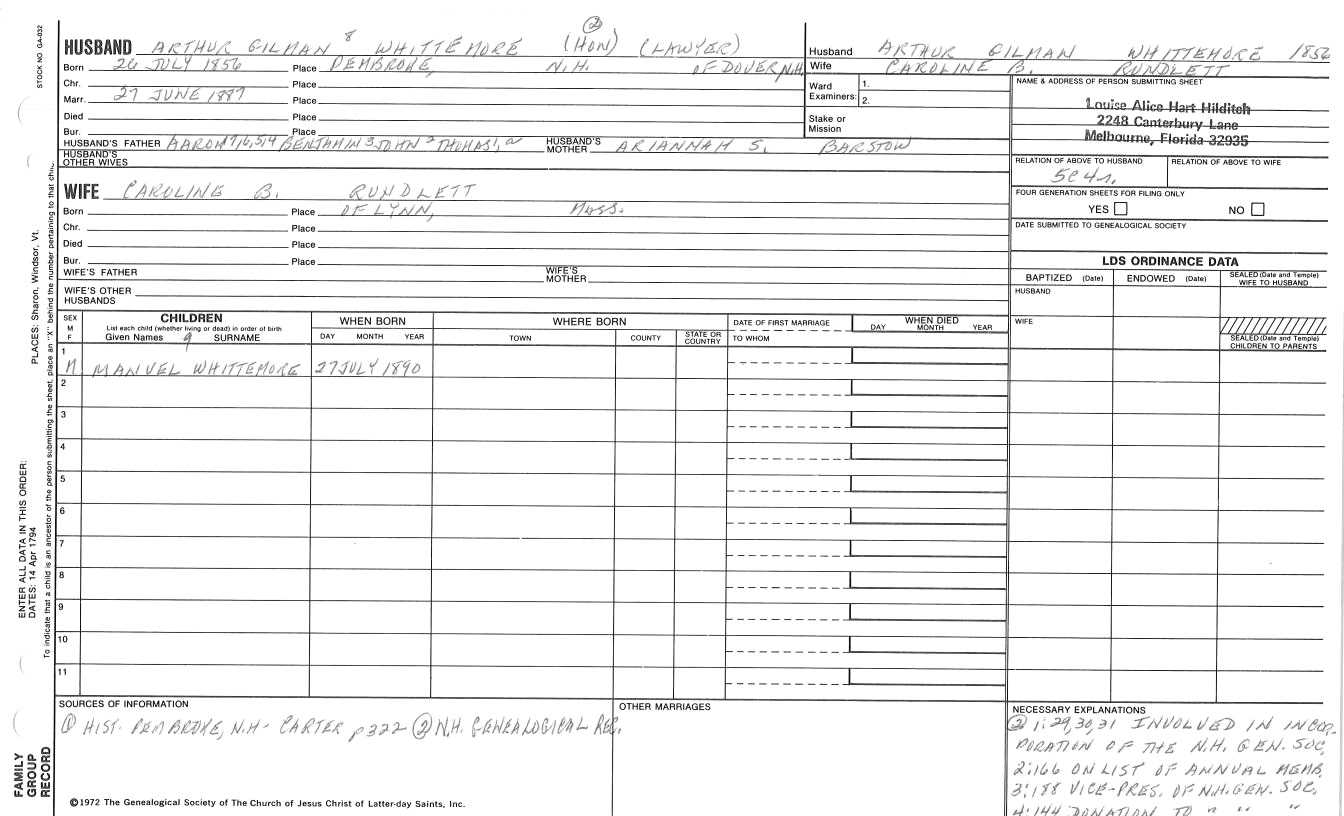 STOCK NO. GA-032
②
HUSBAND ARTHUR GILMAN 8 WHITTEMORE (HON) (LAWYER)
Born 26 JULY 1856 Place PEMBROKE, N.H. OF DOVER, N.H.
Chr. Place
Marr. 27 JUNE 1887 Place
Died Place
Bur. Place
HUSBAND'S FATHER AARON 7,6,5,4 BENJAMIN 3 JOHN 2 THOMAS 1, a HUSBAND'S MOTHER ARIANNAH S. BARSTOW
HUSBAND'S OTHER WIVES
Husband ARTHUR GILMAN WHITTEMORE 1856
Wife CAROLINE B. RUNDLETT
Ward Examiners: 1.
2.
Stake or Mission
NAME & ADDRESS OF PERSON SUBMITTING SHEET
Louise Alice Hart Hilditch
2248 Canterbury Lane
Melbourne, Florida 32935
RELATION OF ABOVE TO HUSBAND RELATION OF ABOVE TO WIFE
5C4r.
FOUR GENERATION SHEETS FOR FILING ONLY
YES NO
DATE SUBMITTED TO GENEALOGICAL SOCIETY
WIFE CAROLINE B. RUNDLETT
Born Place OF LYNN, MASS.
Chr. Place
Died Place
Bur. Place
WIFE'S FATHER WIFE'S MOTHER
WIFE'S OTHER HUSBANDS
LDS ORDINANCE DATA
BAPTIZED (Date) ENDOWED (Date) SEALED (Date and Temple) WIFE TO HUSBAND
HUSBAND
WIFE
SEALED (Date and Temple) CHILDREN TO PARENTS
SEX M F
CHILDREN
List each child (whether living or dead) in order of birth
Given Names 9 SURNAME
WHEN BORN
DAY MONTH YEAR
WHERE BORN
TOWN COUNTY STATE OR COUNTRY
DATE OF FIRST MARRIAGE
TO WHOM
WHEN DIED
DAY MONTH YEAR
1
M MANUEL WHITTEMORE 27 JULY 1890
2
3
4
5
6
7
8
9
10
11
SOURCES OF INFORMATION
① HIST. PEMBROKE, N.H- CARTER p322 ② N.H. GENEALOGICAL REC.
OTHER MARRIAGES
NECESSARY EXPLANATIONS
② 1:29,30,31 INVOLVED IN INCOR-
PORATION OF THE N.H. GEN. SOC.
2:166 ON LIST OF ANNUAL MEMB.
3:188 VICE-PRES. OF N.H. GEN. SOC.
4:144 DONATION TO " " "
©1972 The Genealogical Society of The Church of Jesus Christ of Latter-day Saints, Inc.
PLACES: Sharon, Windsor, Vt.
ENTER ALL DATA IN THIS ORDER:
DATES: 14 Apr 1794
To indicate that a child is an ancestor of the person submitting the sheet, place an "X" behind the number pertaining to that
FAMILY
GROUP
RECORD